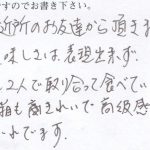 ですのでお書き下さい。
近所のお友達から頂きま
味しさは表現出来ず
2人で取り合って食べてい
箱も高きれいで高級感
れでます。